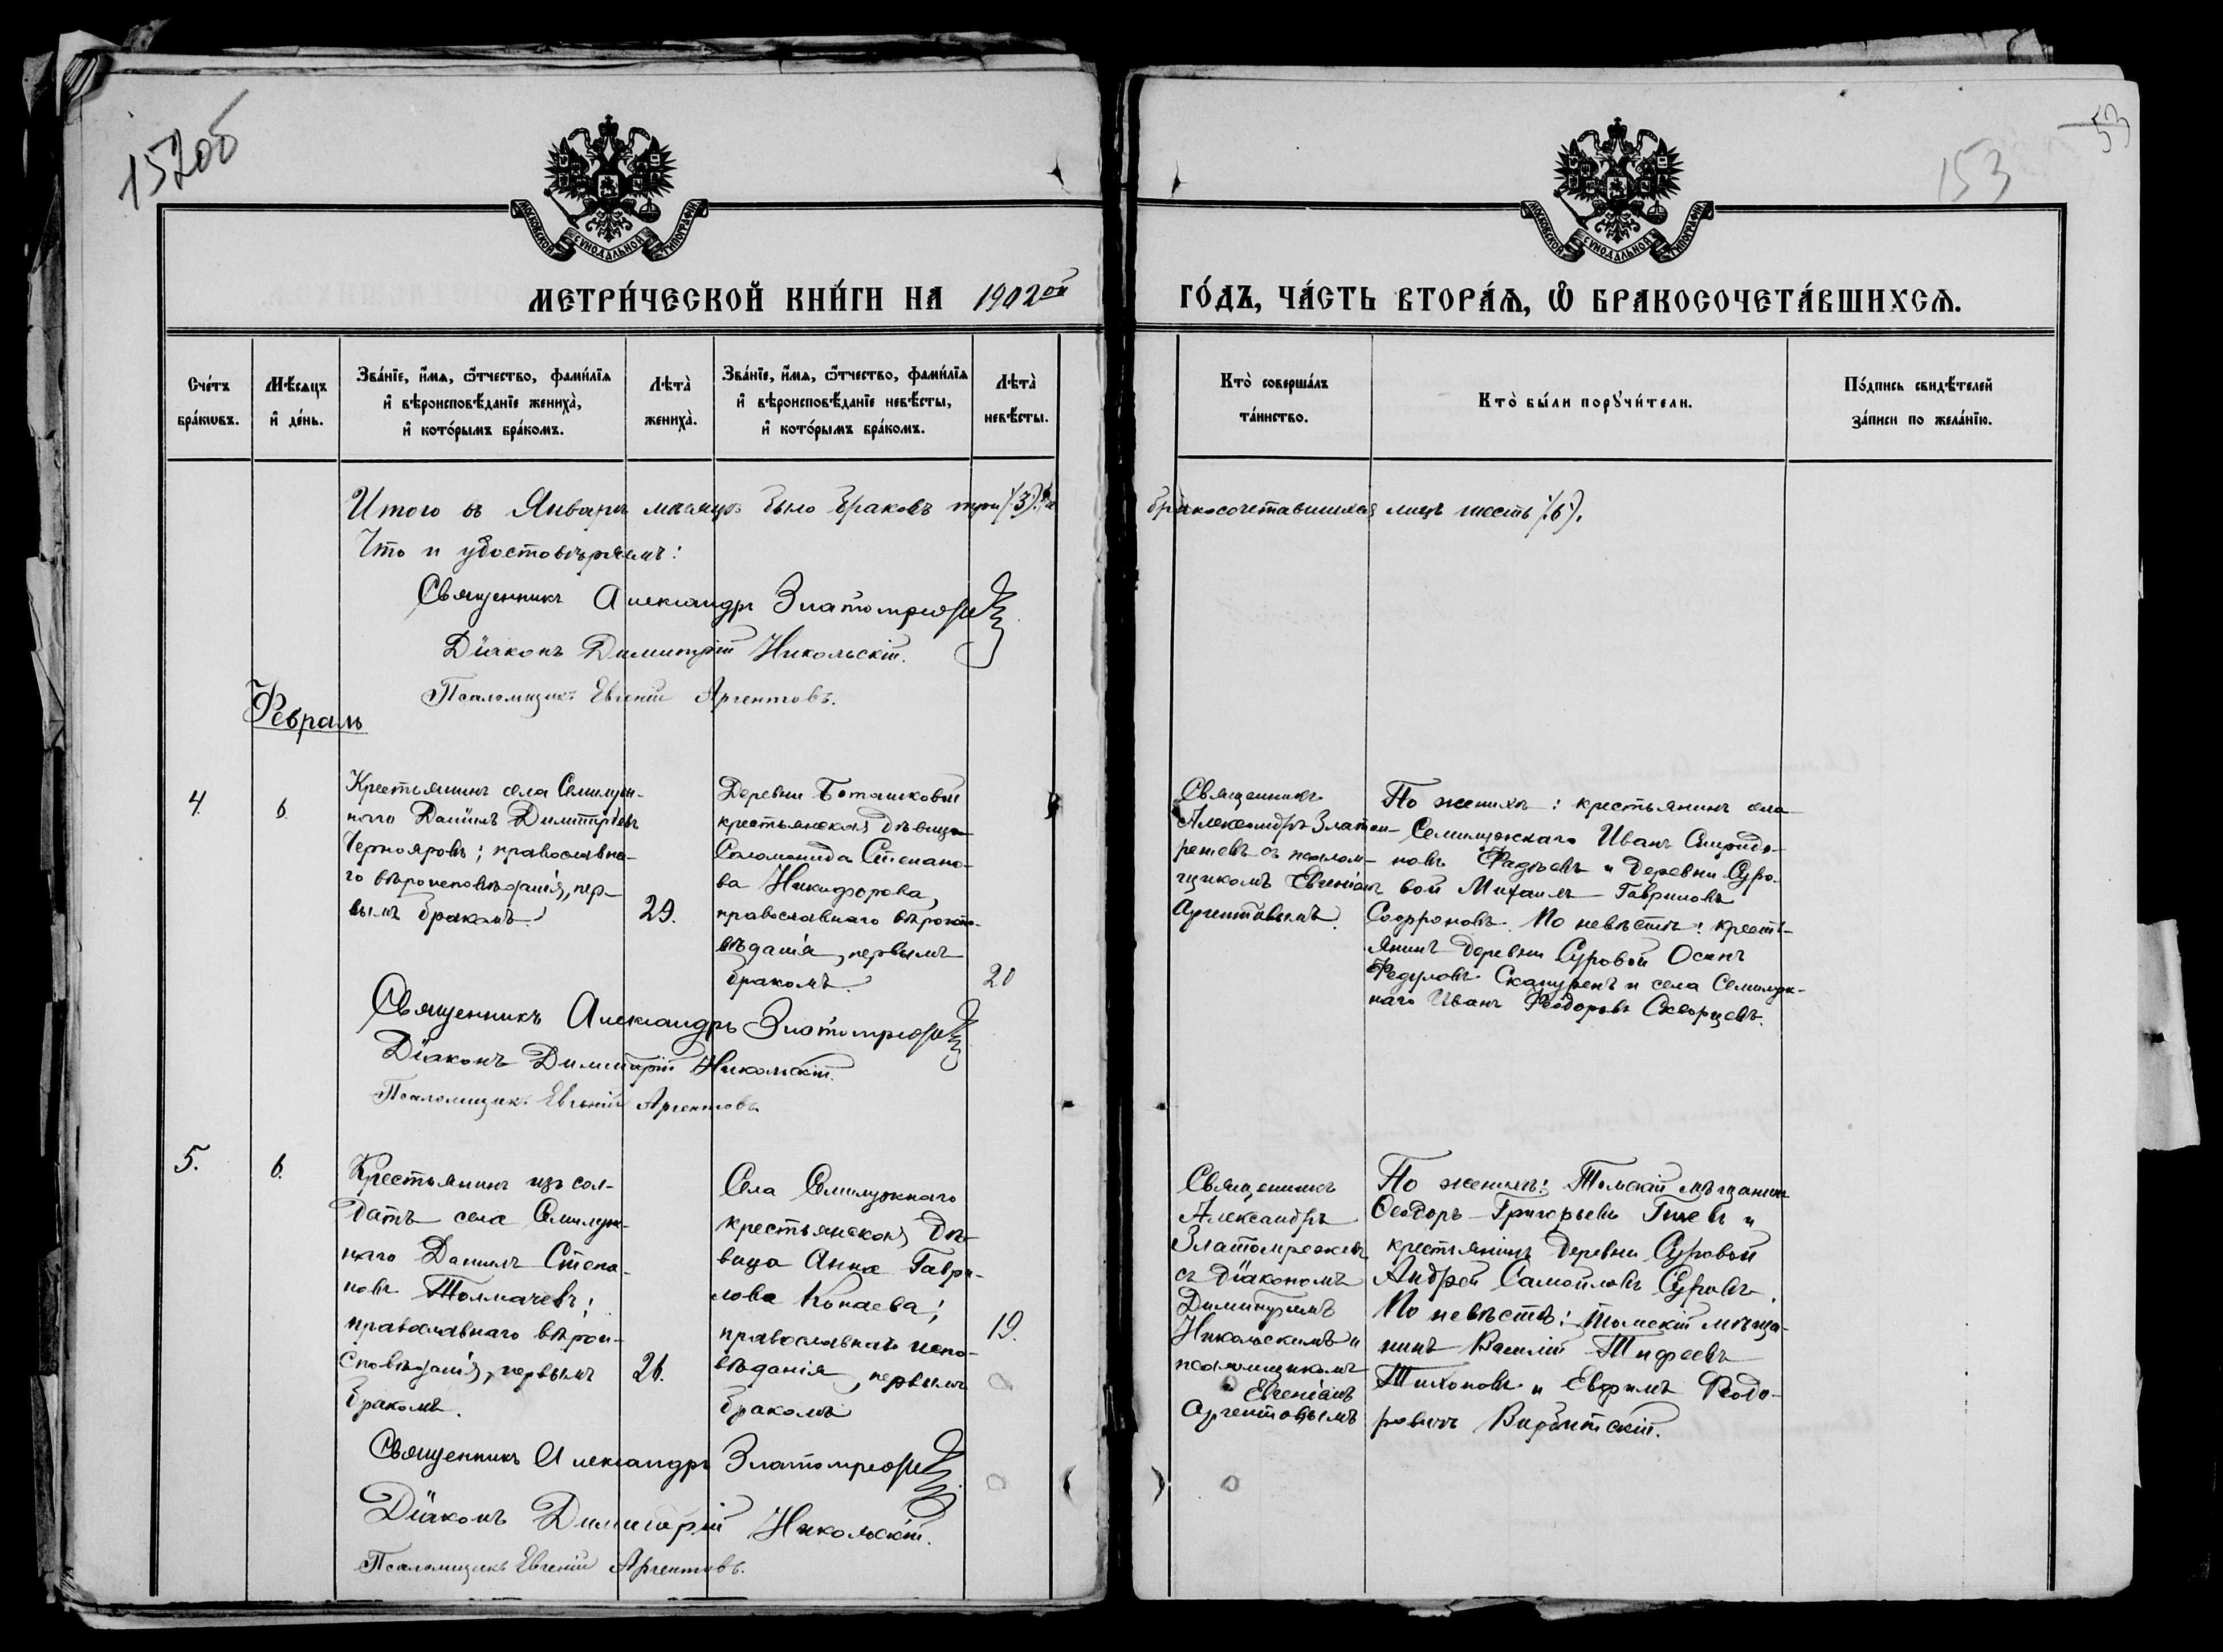 152об
153
53
МОСКОВСКОЙ СУНОДАЛЬНОЙ ТИПОГРАФІИ
МОСКОВСКОЙ СУНОДАЛЬНОЙ ТИПОГРАФІИ
МЕТРИ́ЧЕСКОЙ КНИ́ГИ НА 1902ой ГО́ДЪ, ЧА́СТЬ ВТОРА́Я, Ѿ БРАКОСОЧЕТА́ВШИХСЯ.
Сче́тъ бра́кѡвъ.
Мѣ́сяцъ и҆ де́нь.
Зва́нїе, и҆́мя, ѻ҆́тчество, фами́лїя
и҆ вѣроисповѣ́данїе жениха̀,
и҆ кото́рымъ бра́комъ.
Лѣта̀ жениха̀.
Зва́нїе, и҆́мя, ѻ҆́тчество, фами́лїя
и҆ вѣроисповѣ́данїе невѣ́сты,
и҆ кото́рымъ бра́комъ.
Лѣта̀ невѣ́сты.
Кто̀ соверша́лъ
та́инство.
Кто̀ бы́ли порꙋчи́тели.
По́дпись свидѣ́телей
за́писи по жела́нїю.
Итого въ Январѣ мѣсяцѣ было браковъ три (3), бракосочетавшихся лицъ шесть (6).
Что и удостовѣряемъ:
Священникъ Александръ Златомрежевъ
Діаконъ Димитрій Никольскій.
Псаломщикъ Евгеній Аргентовъ.
Февраль
4.
6.
Крестьянинъ села Семилуж-
наго Даніилъ Димитріевъ
Чернояровъ; православна-
го вѣроисповѣданія, пер-
вымъ бракомъ.
29.
Деревни Боташковой
крестьянская дѣвица
Соломонида Степано-
ва Никифорова,
православнаго вѣроиспо-
вѣданія, первымъ
бракомъ.
20
Священникъ
Александръ Златом-
режевъ съ псалом-
щикомъ Евгеніемъ
Аргентовымъ.
По женихѣ: крестьянинъ села
Семилужнаго Иванъ Спиридо-
новъ Фадѣевъ и деревни Суро-
вой Михаилъ Гавриловъ
Софроновъ. По невѣстѣ: кресть-
янинъ деревни Суровой Осипъ
Федуловъ и села Семилуж-
наго Иванъ Феодоровъ Скворцевъ.
Священникъ Александръ Златомрежевъ
Діаконъ Димитрій Никольскій.
Псаломщикъ Евгеній Аргентовъ.
5.
6.
Крестьянинъ изъ сол-
датъ села Семилуж-
наго Даніилъ Степа-
новъ Толмачевъ;
православнаго вѣрои-
сповѣданія, первымъ
бракомъ.
26.
Села Семилужнаго
крестьянская дѣ-
вица Анна Гаври-
лова Копаева;
православнаго испо-
вѣданія, первымъ
бракомъ
19.
Священникъ
Александръ
Златомрежевъ
съ діакономъ
Димитріемъ
Никольскимъ и
псаломщикомъ
Евгеніемъ
Аргентовымъ
По женихѣ: Томскій мѣщанинъ
Ѳеодоръ Григорьевъ и
крестьянинъ деревни Суровой
Андрей Самойловъ Суровъ.
По невѣстѣ: Томскій мѣща-
нинъ Василій
Тихоновъ и Евфимъ Феодо-
ровичъ
Священникъ Александръ Златомрежевъ
Діаконъ Димитрій Никольскій.
Псаломщикъ Евгеній Аргентовъ.